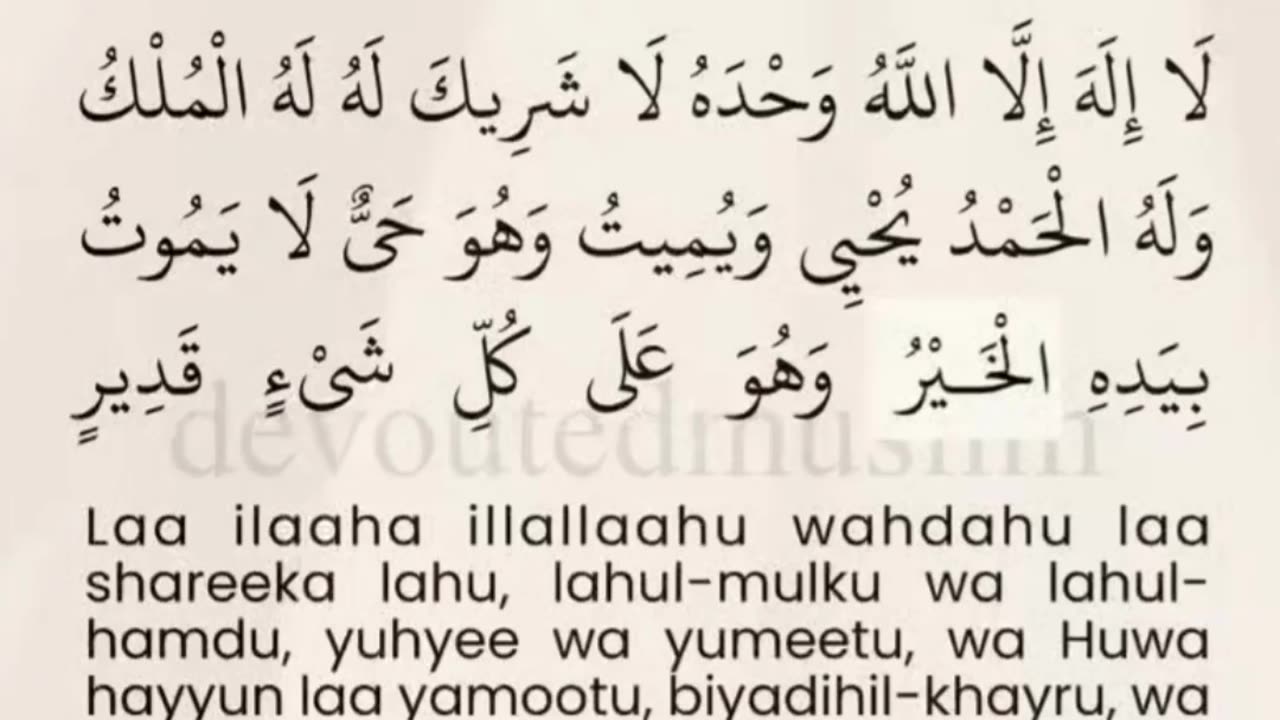 لَا إِلَهَ إِلَّا اللَّهُ وَحْدَهُ لَا شَرِيكَ لَهُ لَهُ الْمُلْكُ
وَلَهُ الْحَمْدُ يُحْيِي وَيُمِيتُ وَهُوَ حَىٌّ لَا يَمُوتُ
بِيَدِهِ الْخَيْرُ وَهُوَ عَلَى كُلِّ شَىْءٍ قَدِيرٍ
devoutedmuslim
Laa ilaaha illallaahu wahdahu laa
shareeka lahu, lahul-mulku wa lahul-
hamdu, yuhyee wa yumeetu, wa Huwa
hayyun laa yamootu, biyadihil-khayru, wa